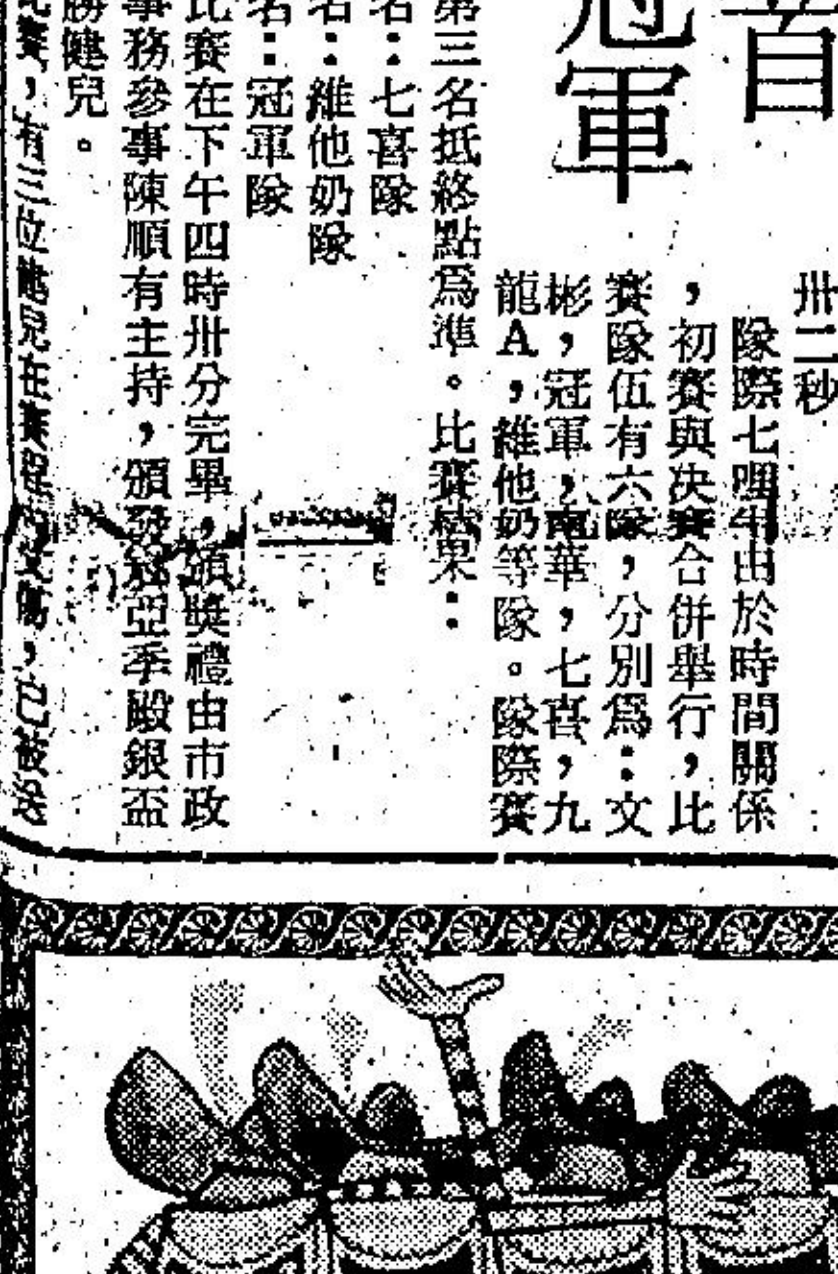 冠軍
卅二秒
隊際七哩半由於時間關係
，初賽與決賽合併舉行，比
賽隊伍有六隊，分別爲：文
彬，冠軍，南華，七喜，九
龍A，維他奶等隊。隊際賽
第三名抵終點爲準。比賽結果：
名：七喜隊
名：維他奶隊
名：冠軍隊
比賽在下午四時卅分完畢，頒獎禮由市政
事務參事陳順有主持，頒發冠亞季殿銀盃
勝健兒。
比賽，有三位健兒在賽程中受傷，已被送